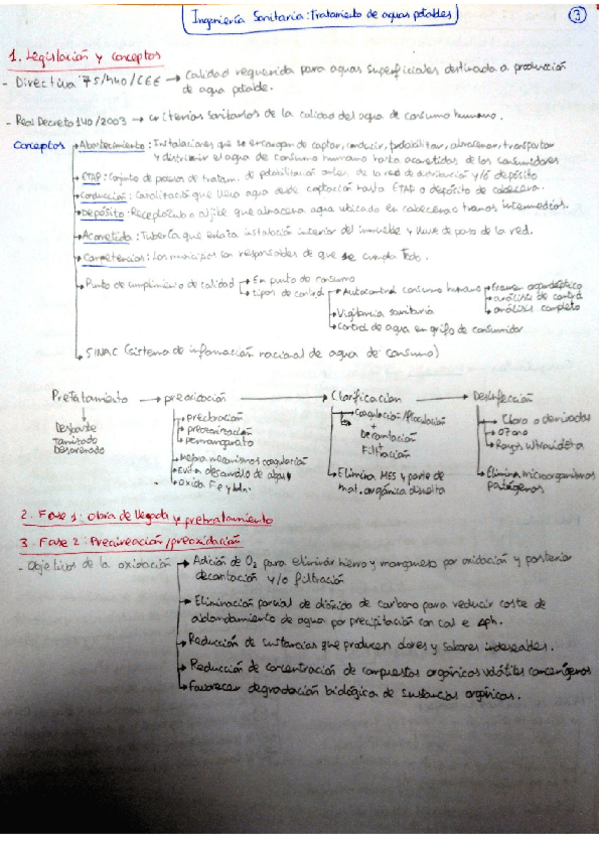 Ingeniería Sanitaria: Tratamiento de aguas potables
3
1. Legislación y conceptos
- Directiva 75/440/CEE → Calidad requerida para aguas superficiales destinada a producción
de agua potable.
- Real Decreto 140/2003 → criterios sanitarios de la calidad del agua de consumo humano.
Conceptos
Abastecimiento: Instalaciones que se encargan de captar, conducir, potabilizar, almacenar, transportar
y distribuir el agua de consumo humano hasta acometidas de los consumidores
ETAP: Conjunto de procesos de tratam. de potabilización antes de la red de distribución y/o depósito
Conducción: Canalización que lleva agua desde captación hasta ETAP o depósito de cabecera.
Depósito: Receptáculo o aljibe que almacena agua ubicado en cabecera o tramos intermedios.
Acometida: Tubería que enlaza instalación interior del inmueble y llave de paso de la red.
Competencias: Los municipios son responsables de que se cumpla todo.
Punto de cumplimiento de calidad → En punto de consumo
→ tipos de control → Autocontrol consumo humano → Examen organoléptico
→ análisis de control
→ análisis completo
→ Vigilancia sanitaria
→ Control de agua en grifo de consumidor
SINAC (sistema de información nacional de agua de consumo)
Pretratamiento → preoxidación → Clarificación → Desinfección
Desbaste
Tamizado
Desarenado
→ precloración
→ preozonización
→ permanganato
→ Mejora mecanismos coagulación
→ Evita desarrollo de algas
→ Oxida Fe y Mn.
→ Coagulación/floculación
+
Decantación
+
Filtración
→ Elimina MES y parte de
mat. orgánica disuelta
→ Cloro o derivados
→ Ozono
→ Rayos ultravioleta
→ Elimina microorganismos
patógenos
2. Fase 1: Obra de llegada y pretratamiento
3. Fase 2: Preaireación/preoxidación
- Objetivos de la oxidación
→ Adición de O2 para eliminar hierro y manganeso por oxidación y posterior
decantación y/o filtración
→ Eliminación parcial de dióxido de carbono para reducir coste de
ablandamiento de agua por precipitación con cal e ↑ph.
→ Reducción de sustancias que producen olores y sabores indeseables.
→ Reducción de concentración de compuestos orgánicos volátiles cancerígenos
→ Favorecer degradación biológica de sustancias orgánicas.